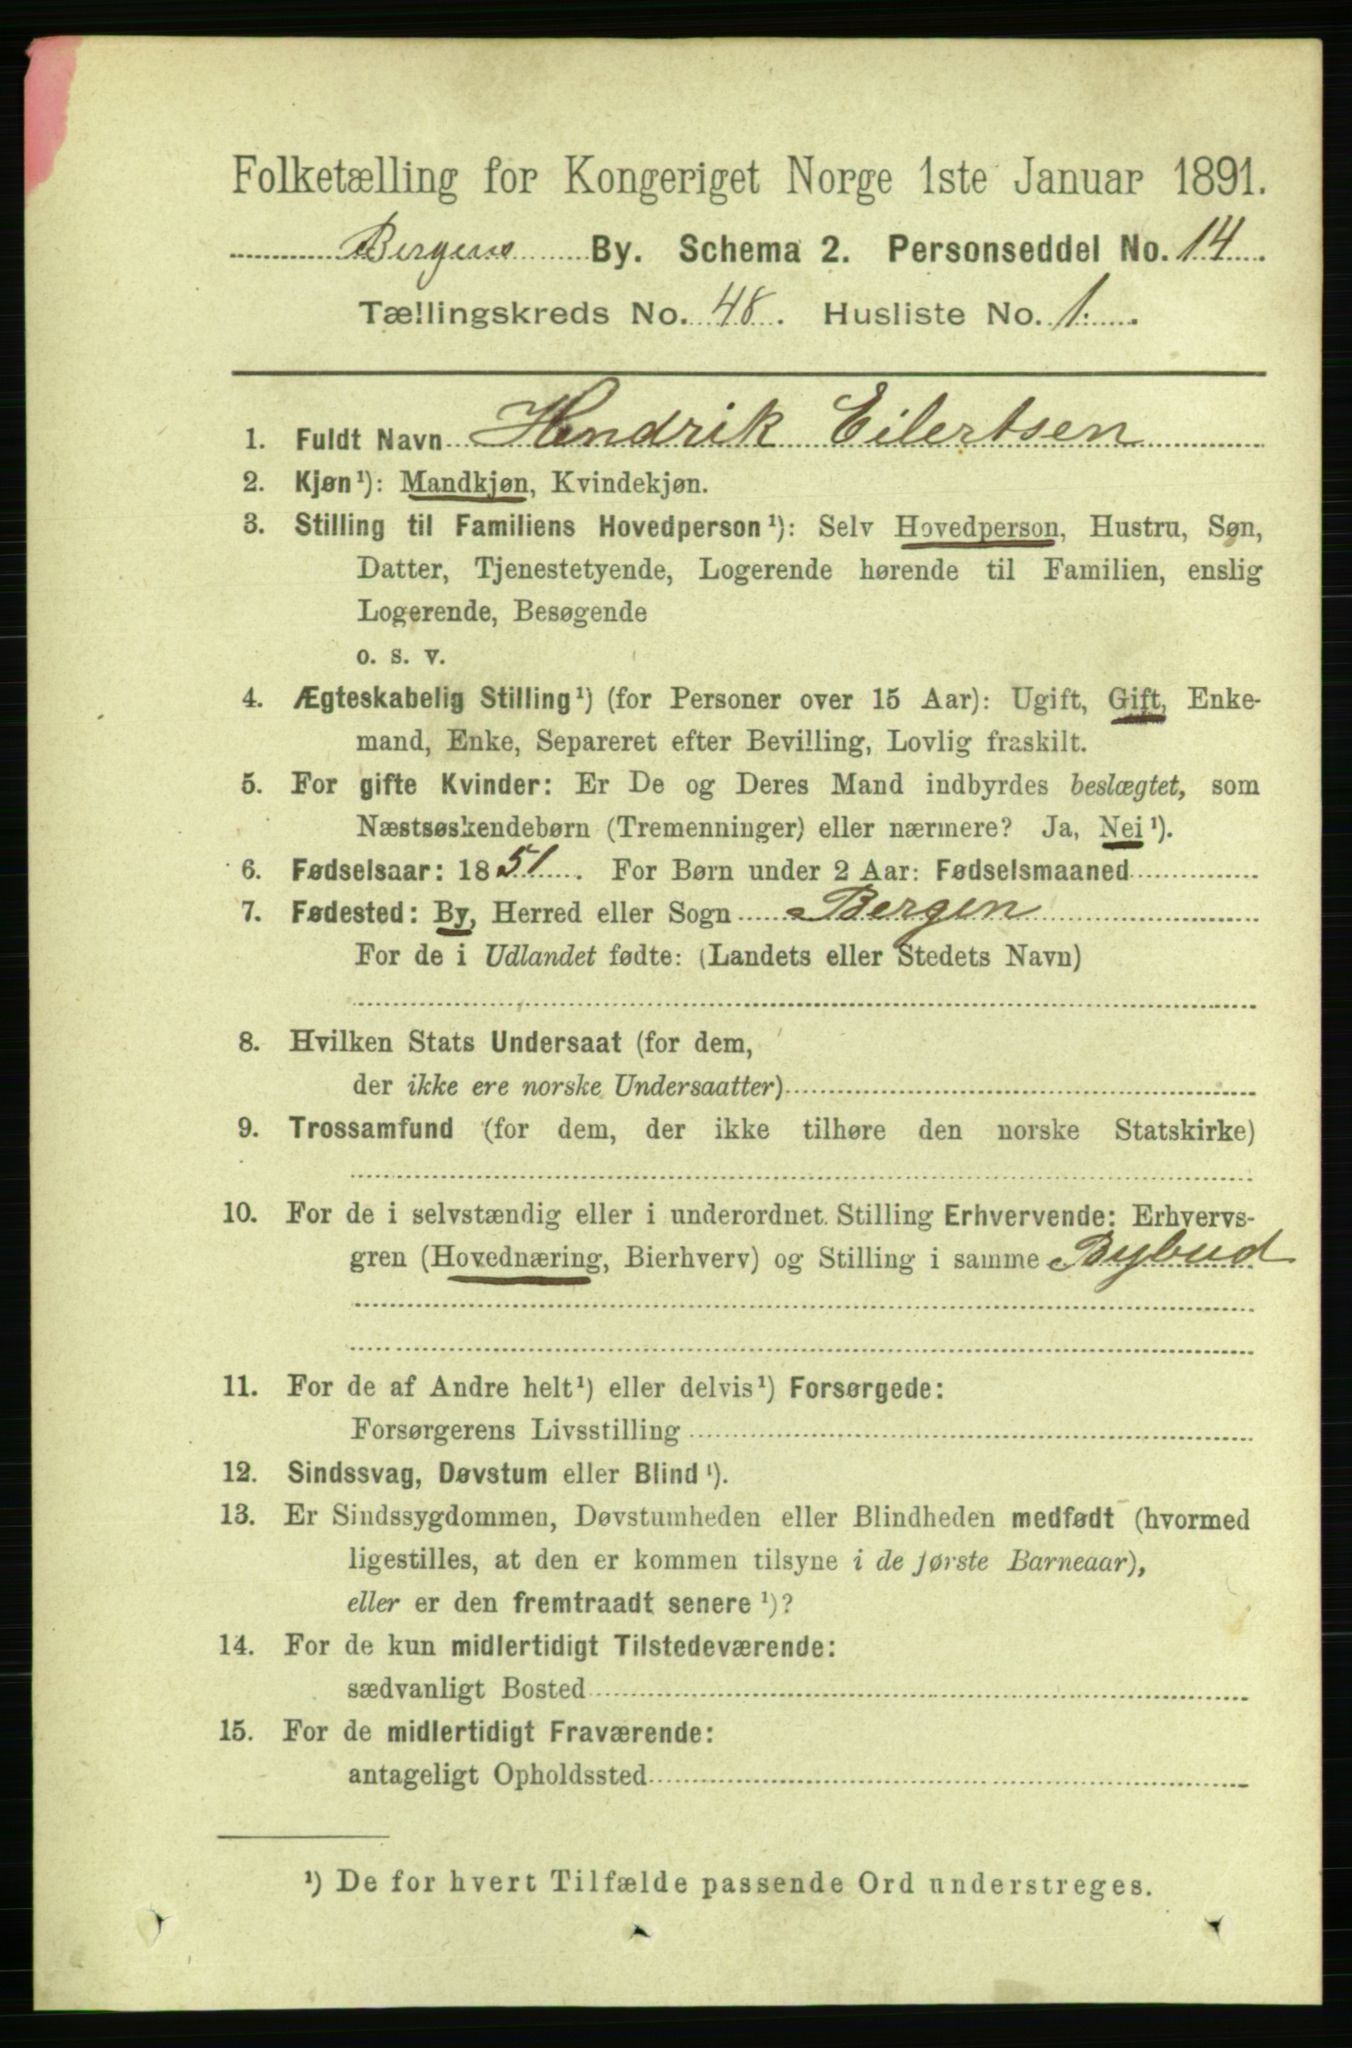 Folketælling for Kongeriget Norge 1ste Januar 1891.
Bergens By. Schema 2. Personseddel No. 14.
Tællingskreds No. 48. Husliste No. 1.
1. Fuldt Navn Hendrik Eilertsen
2. Kjøn¹): Mandkjøn, Kvindekjøn.
3. Stilling til Familiens Hovedperson¹): Selv Hovedperson, Hustru, Søn,
Datter, Tjenestetyende, Logerende hørende til Familien, enslig
Logerende, Besøgende
o. s. v.
4. Ægteskabelig Stilling¹) (for Personer over 15 Aar): Ugift, Gift, Enke-
mand, Enke, Separeret efter Bevilling, Lovlig fraskilt.
5. For gifte Kvinder: Er De og Deres Mand indbyrdes beslægtet, som
Næstsøskendebørn (Tremenninger) eller nærmere? Ja, Nei¹).
6. Fødselsaar: 1851. For Børn under 2 Aar: Fødselsmaaned
7. Fødested: By, Herred eller Sogn Bergen
For de i Udlandet fødte: (Landets eller Stedets Navn)
8. Hvilken Stats Undersaat (for dem,
der ikke ere norske Undersaatter)
9. Trossamfund (for dem, der ikke tilhøre den norske Statskirke)
10. For de i selvstændig eller i underordnet Stilling Erhvervende: Erhvervs-
gren (Hovednæring, Bierhverv) og Stilling i samme Bybud
11. For de af Andre helt¹) eller delvis¹) Forsørgede:
Forsørgerens Livsstilling
12. Sindssvag, Døvstum eller Blind¹).
13. Er Sindssygdommen, Døvstumheden eller Blindheden medfødt (hvormed
ligestilles, at den er kommen tilsyne i de første Barneaar),
eller er den fremtraadt senere¹)?
14. For de kun midlertidigt Tilstedeværende:
sædvanligt Bosted
15. For de midlertidigt Fraværende:
antageligt Opholdssted
¹) De for hvert Tilfælde passende Ord understreges.